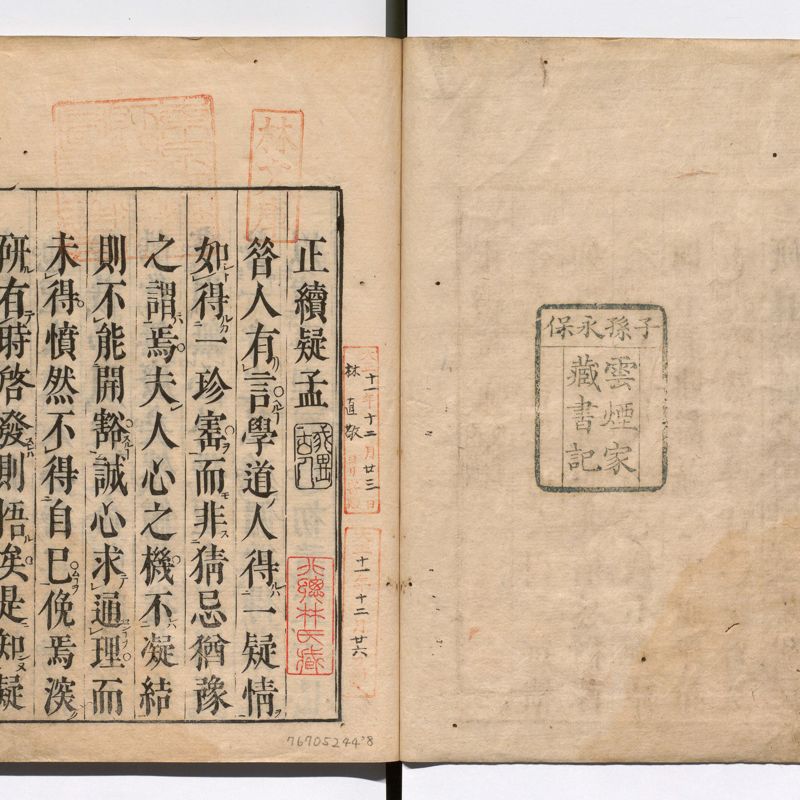 子孫永保
雲煙家
藏書記
十一年十二月廿三日
林直敬
十一年十二月廿六
正續疑孟
八孫林氏藏
昝人有言學道人得一疑情
如得一珍寚而非猜忌猶豫
之謂焉夫人心之機不凝結
則不能開豁誠心求通理而
未得憤然不得自已俛焉深
硏有時啓發則悟矣是知疑
7670524478